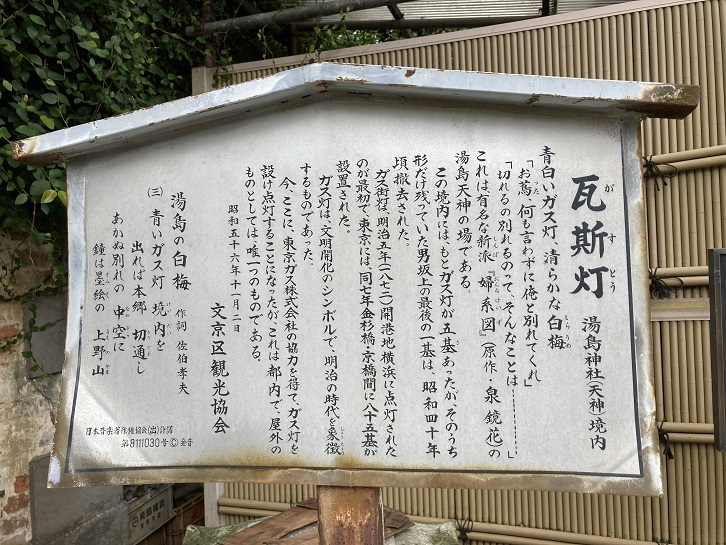 瓦斯灯 湯島神社(天神)境内
青白いガス灯 清らかな白梅
「お蔦、何も言わずに俺と別れてくれ」
「切れるの別れるのって、そんなことは………」
これは有名な新派“婦系図”(原作・泉鏡花)の
湯島天神の場である。
この境内には、もとガス灯が五基あったが、そのうち
形だけ残っていた男坂上の最後の一基は、昭和四十年
頃撤去された。
ガス街灯は、明治五年(一八七二)開港地横浜に点灯された
のが最初で、東京には、同七年金杉橋・京橋間に八十五基が
設置された。
ガス灯は、文明開化のシンボルで、明治の時代を象徴
するものであった。
今、ここに、東京ガス株式会社の協力を得て、ガス灯を
設け点灯することになったが、これは都内で、屋外の
ものとしては唯一つのものである。
昭和五十六年十一月二日
文京区観光協会
湯島の白梅 作詞 佐伯孝夫
(三) 青いガス灯 境内を
出れば本郷 切通し
あかぬ別れの 中空に
鐘は墨絵の 上野山
日本音楽著作権協会(出)許諾
第8111030号 © 全音